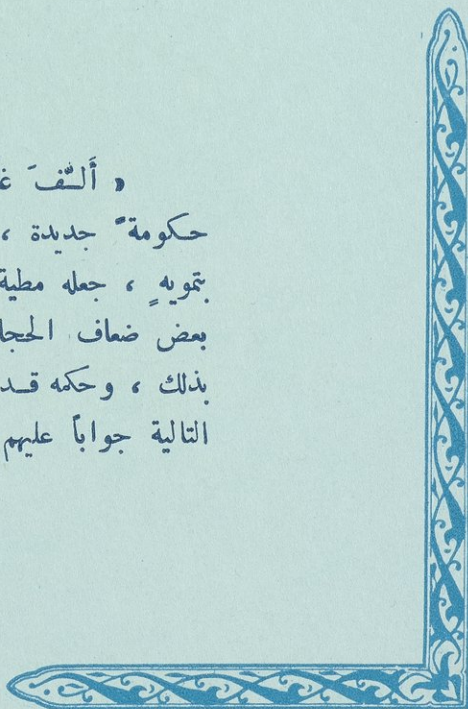 « أَلَّفَ غ
حكومةً جديدة ،
بتمويهٍ ، جعله مطية
بعض ضعاف الحجا
بذلك ، وحكمه قد
التالية جواباً عليهم